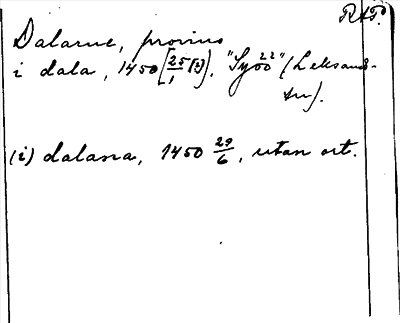 RAP.
Dalarne, provins
i dala, 1450 [25/1 (?)], "Syoo" (Leksands-
tr.).
(i) dalana, 1450 29/6, utan ort.